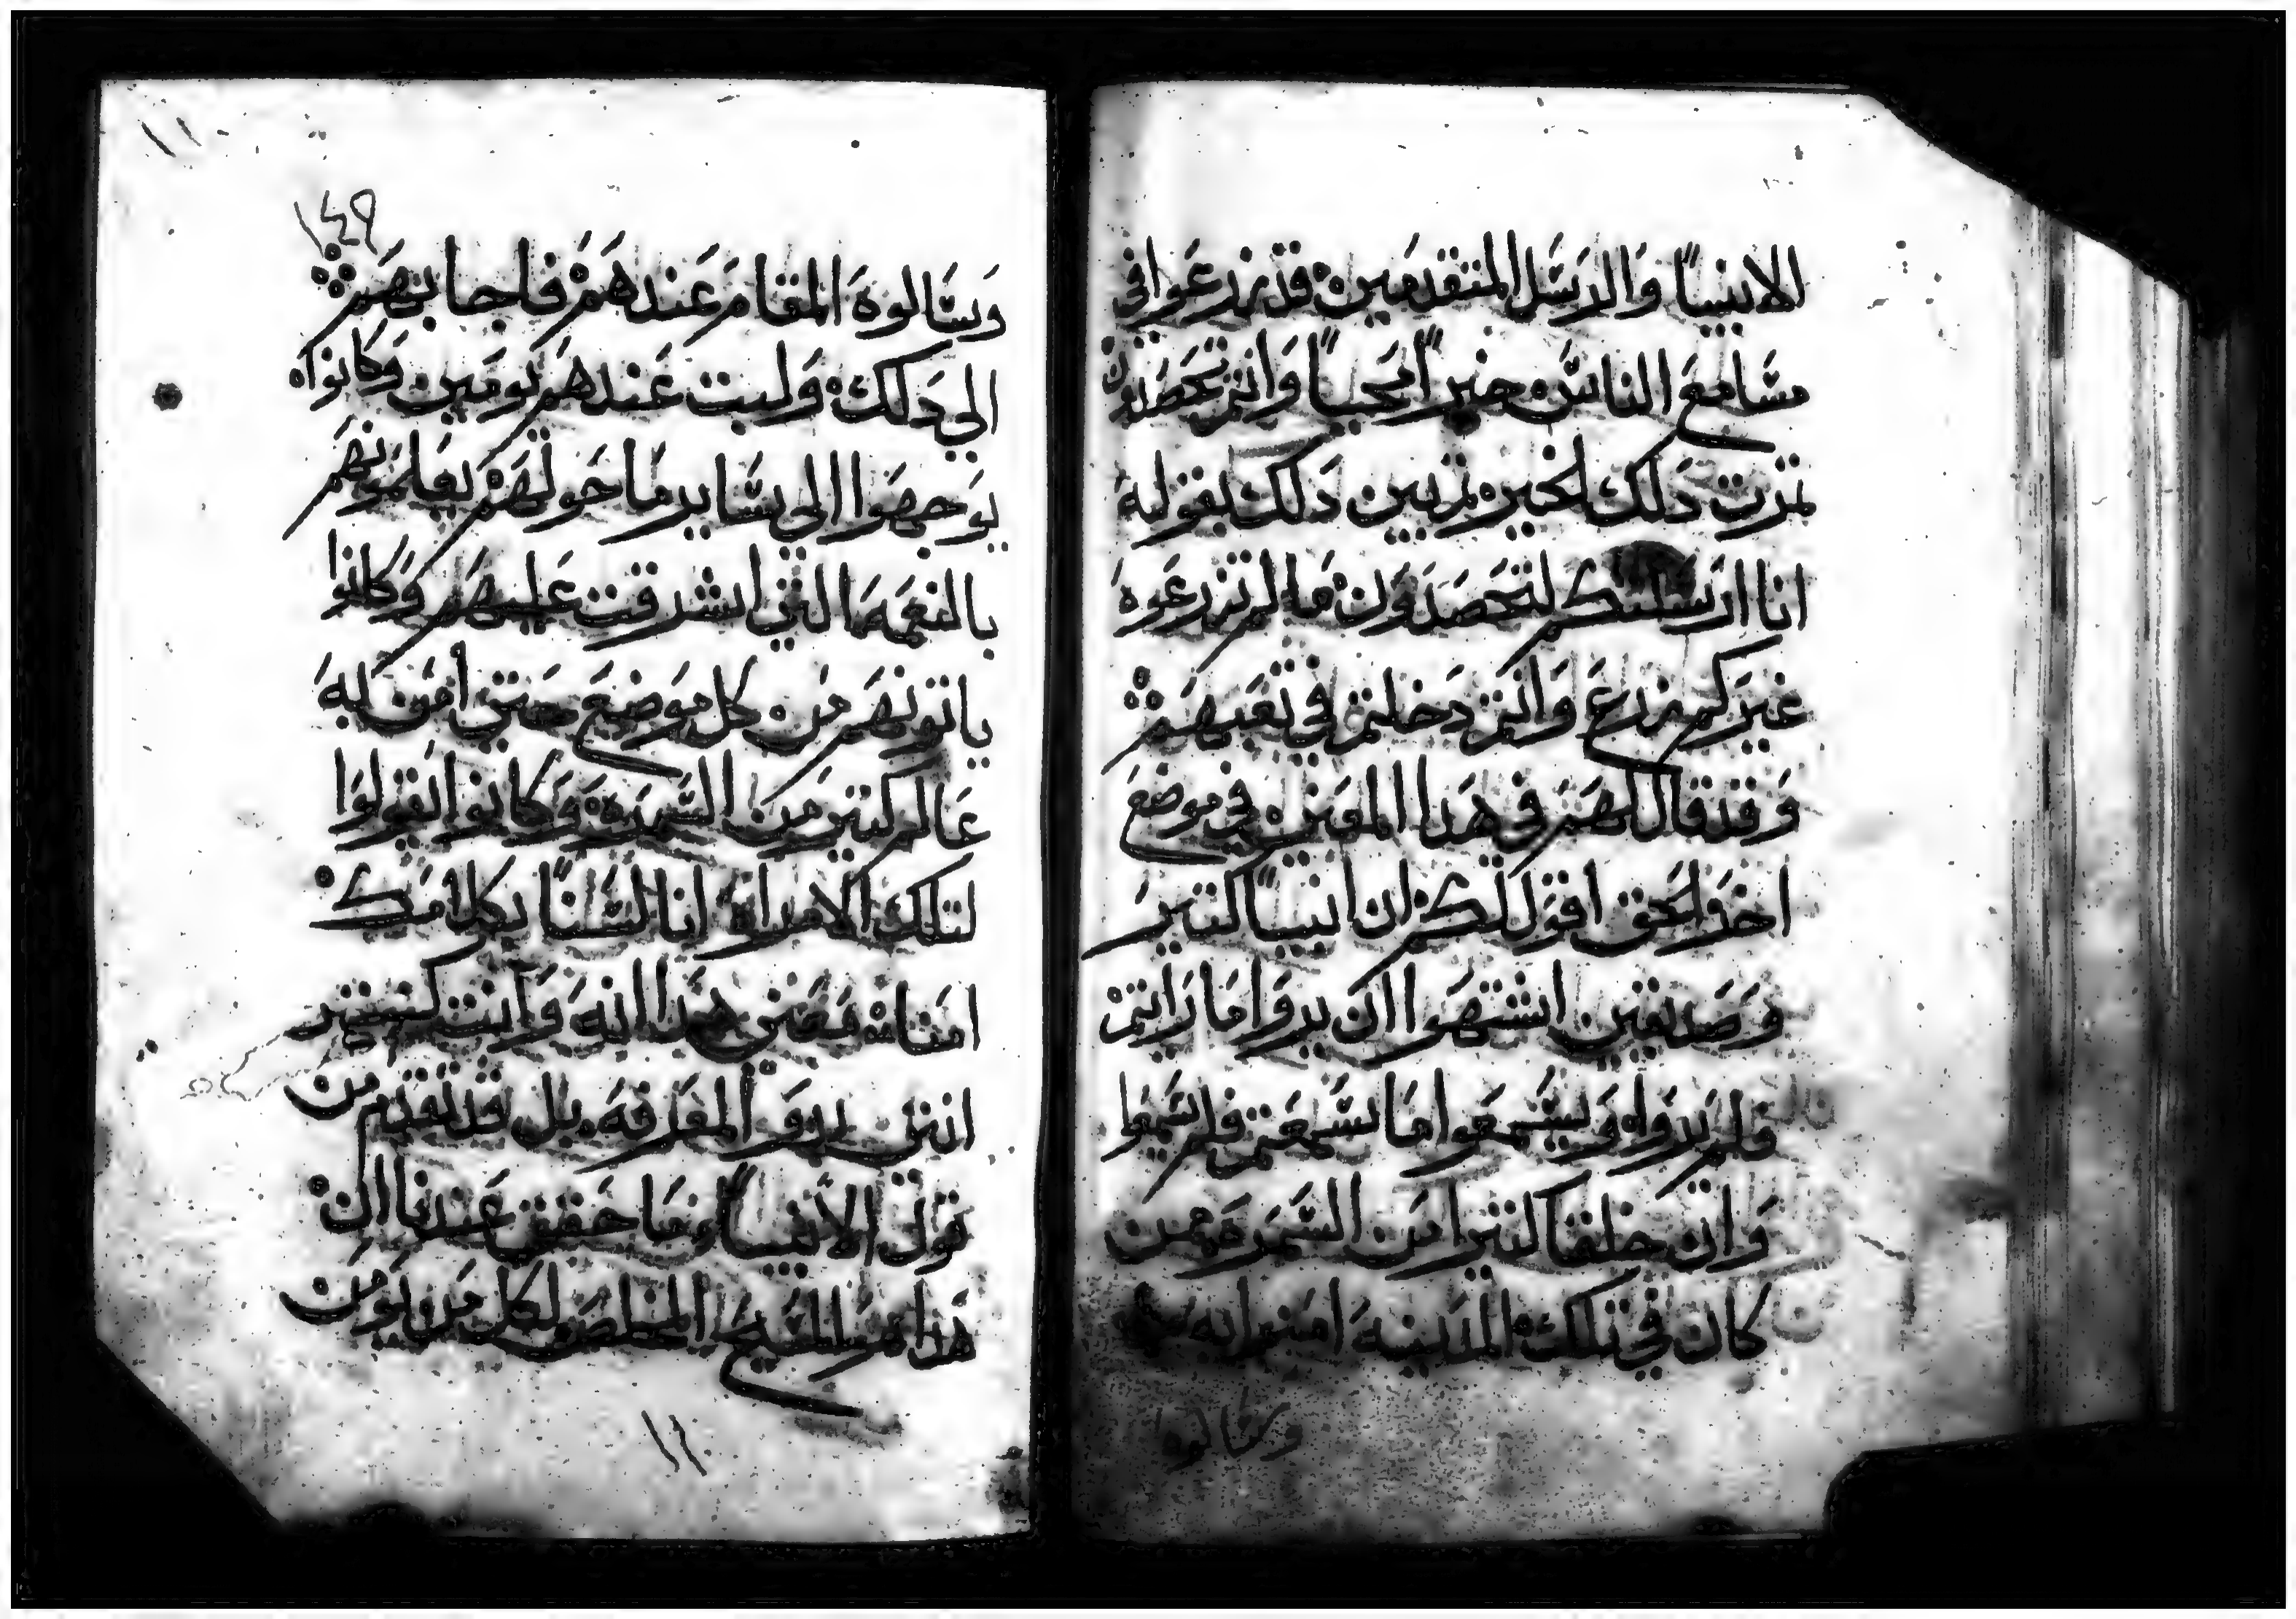 الانبيا والرسل المتقدمين قد زرعوا في
مسامع الناس خبر امجيا وانتم تحصدون
ثمرت دلك الخبر ثم بين دلك بقوله
انا ارسلتكم لتحصدون ما لم تزرعوه
غيركم زرع وانتم دخلتم في تعبهم
وقد قال لهم في هدا المعني في موضع
اخر الحق اقول لكم ان انبيا كتير
وصديقين اشتهوا ان يروا ما رايتم
فلم يروا ويسمعوا ما سمعتم فلم يسمعوا
وان خلقا كتيرا من السمره ممن
كان في تلك المدينه امنوا به
وسالوه
١٤٩
وسالوه المقام عندهم فاجابهم
الي دلك ولبت عندهم يومين وكانوا
يوجهوا الي ساير ما حولهم يعلمونهم
بالنعمه التي اشرقت عليهم وكانوا
ياتونهم من كل موضع حتي امن به
عالم كتير من السمره وكانوا يقولوا
لتلك الامراه انا لسنا بكلامك
امنا معني هدا انه وانت كنتي
المعرفه بل قد تقدم من
قول الانبيا وما حقق عندنا ان
هدا هو المسيح المخلص لكل من يومن
١١